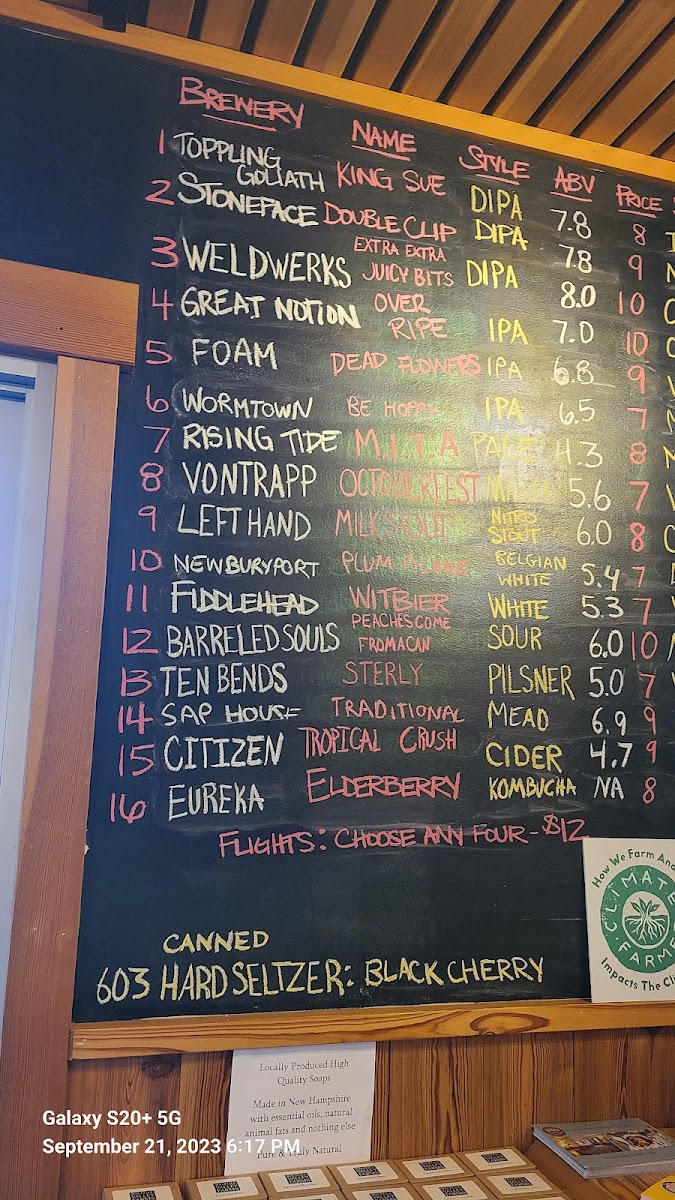 BREWERY NAME STYLE ABV PRICE
1 TOPPLING GOLIATH KING SUE DIPA 7.8 8
2 STONEFACE DOUBLE CLIP DIPA 7.8 9
3 WELDWERKS EXTRA EXTRA JUICY BITS DIPA 8.0 10
4 GREAT NOTION OVER RIPE IPA 7.0 10
5 FOAM DEAD FLOWERS IPA 6.8 9
6 WORMTOWN BE HOPPY IPA 6.5 7
7 RISING TIDE M.I.T.A PALE 4.3 8
8 VONTRAPP OCTOBERFEST 5.6 7
9 LEFT HAND MILKSTOUT NITRO STOUT 6.0 8
10 NEWBURYPORT PLUM ISLAND BELGIAN WHITE 5.4 7
11 FIDDLEHEAD WITBIER WHITE 5.3 7
12 BARRELED SOULS PEACHES COME FROM A CAN SOUR 6.0 10
13 TEN BENDS STERLY PILSNER 5.0 7
14 SAP HOUSE TRADITIONAL MEAD 6.9 9
15 CITIZEN TROPICAL CRUSH CIDER 4.7 9
16 EUREKA ELDERBERRY KOMBUCHA NA 8
FLIGHTS: CHOOSE ANY FOUR - $12
CANNED
603 HARD SELTZER: BLACK CHERRY
How We Farm And
CLIMATE
FARMER
Impacts The Cli
Locally Produced High
Quality Soaps
Made in New Hampshire
with essential oils, natural
animal fats and nothing else
Pure & Truly Natural
Galaxy S20+ 5G
September 21, 2023 6:17 PM